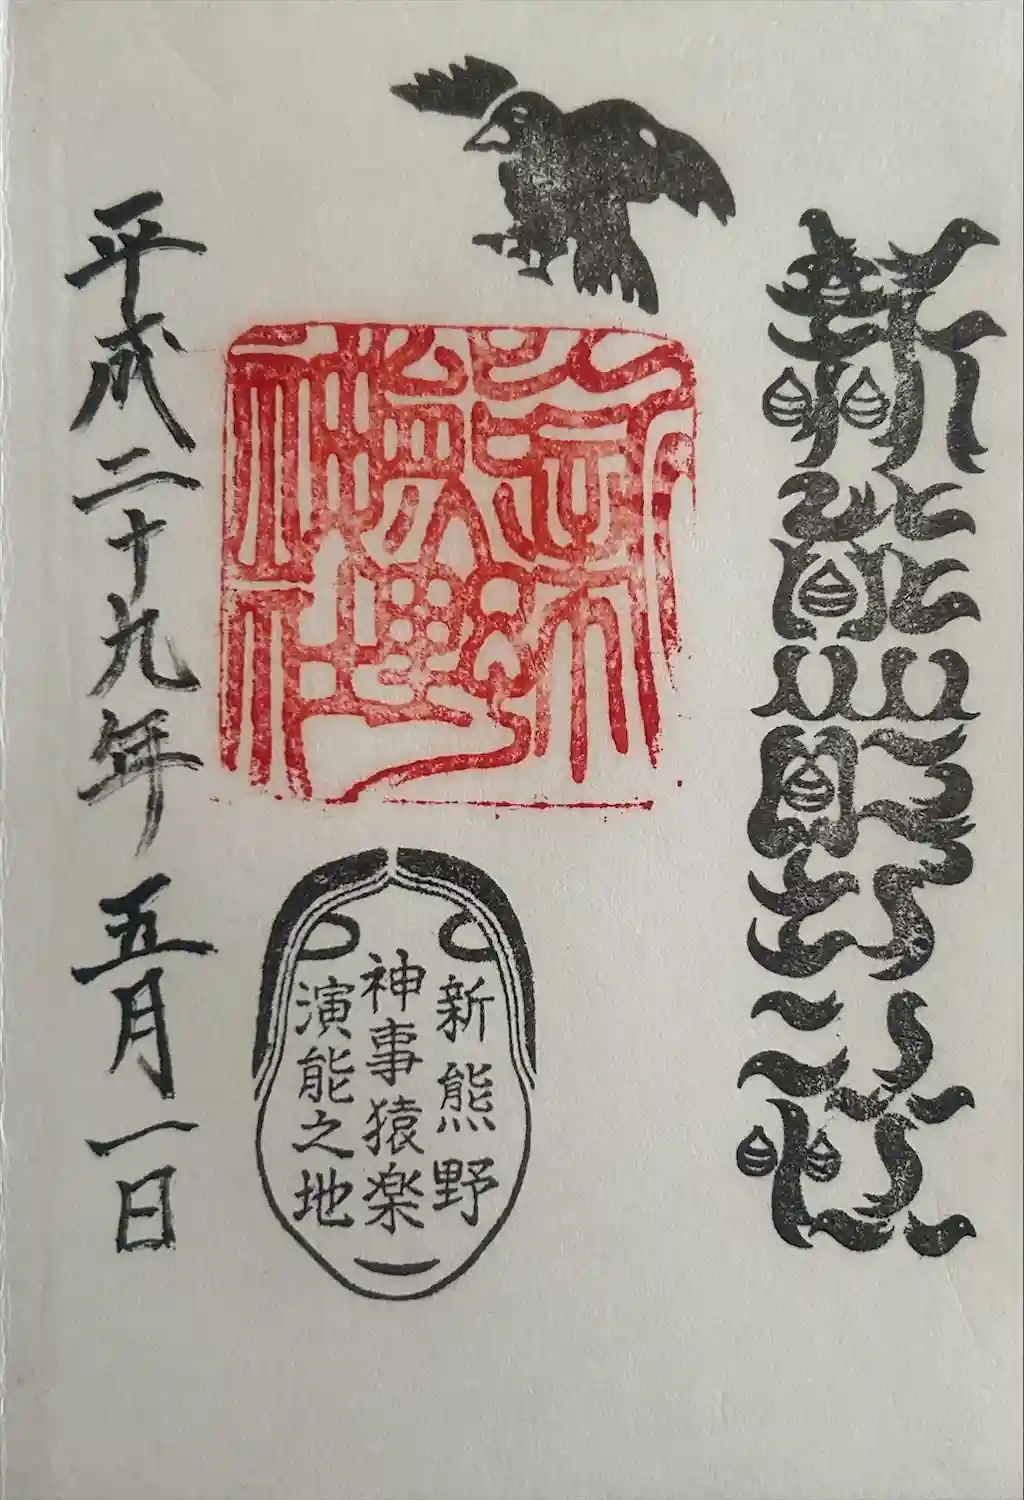 新熊野社
新熊野
神事猿楽
演能之地
平成二十九年五月一日